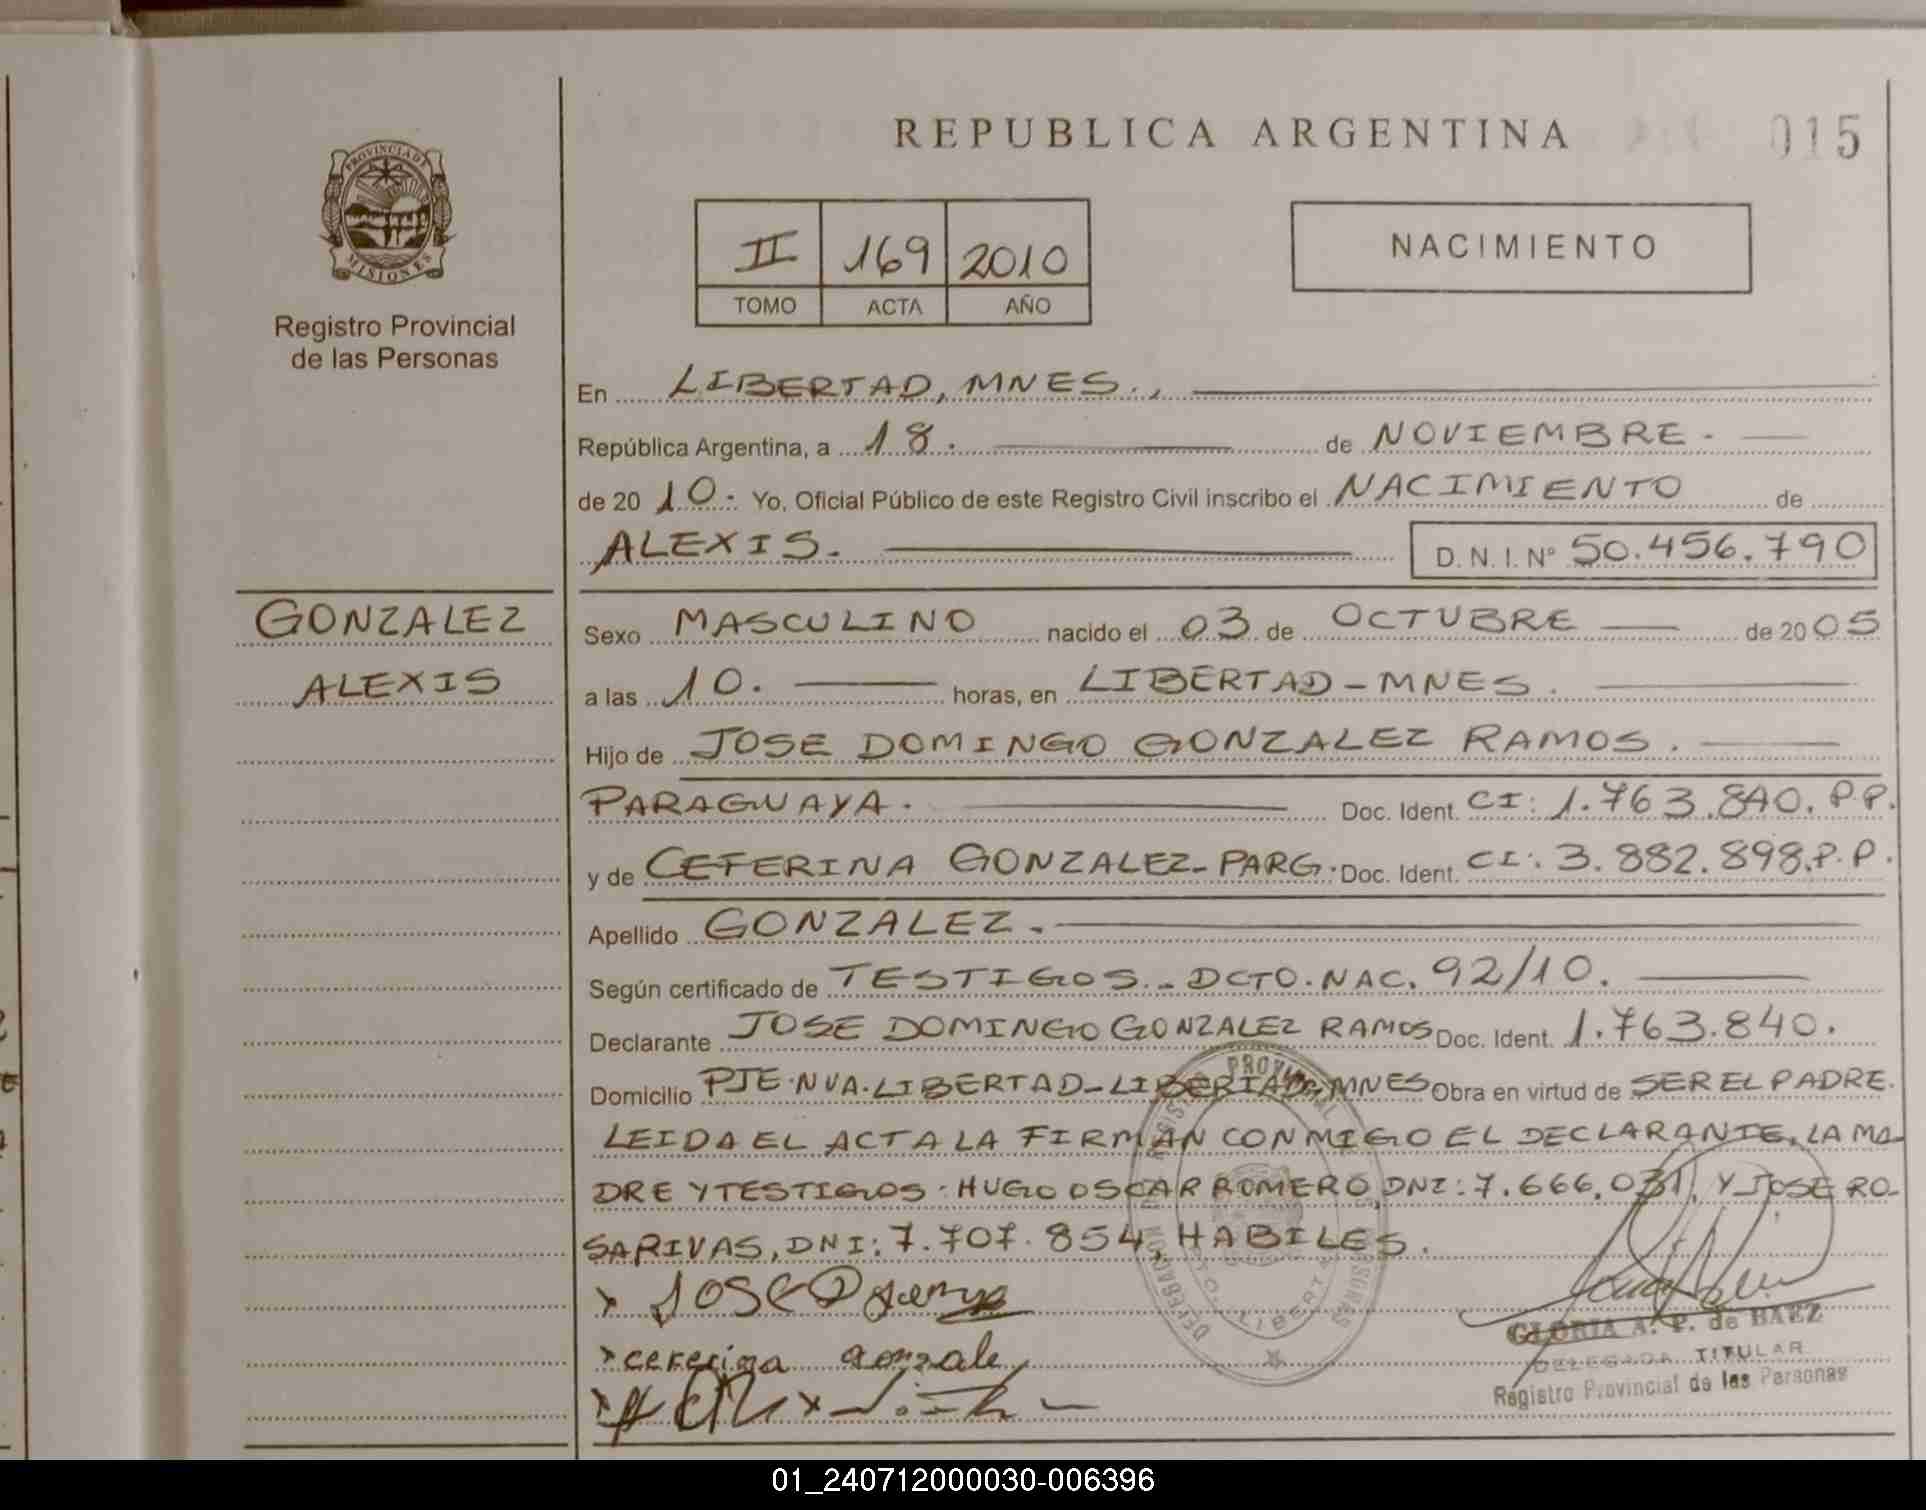 REPUBLICA ARGENTINA
015
PROVINCIA DE
MISIONES
Registro Provincial
de las Personas
II 169 2010
TOMO ACTA AÑO
NACIMIENTO
En LIBERTAD, MNES.,
República Argentina, a 18. de NOVIEMBRE.
de 20 10. Yo, Oficial Público de este Registro Civil inscribo el NACIMIENTO de
ALEXIS. D. N. I. Nº 50.456.790
GONZALEZ
ALEXIS
Sexo MASCULINO nacido el 03 de OCTUBRE de 20 05
a las 10. horas, en LIBERTAD-MNES.
Hijo de JOSE DOMINGO GONZALEZ RAMOS.
PARAGUAYA. Doc. Ident. CI: 1.763.840. P.P.
y de CEFERINA GONZALEZ-PARG. Doc. Ident. CI: 3.882.898. P.P.
Apellido GONZALEZ.
Según certificado de TESTIGOS.- DCTO. NAC. 92/10.
Declarante JOSE DOMINGO GONZALEZ RAMOS Doc. Ident. 1.763.840.
Domicilio PJE. NVA. LIBERTAD-LIBERTAD-MNES Obra en virtud de SER EL PADRE.
LEIDA EL ACTA LA FIRMAN CONMIGO EL DECLARANTE, LA MA-
DRE Y TESTIGOS: HUGO OSCAR ROMERO, DNI: 7.666.031, Y JOSE RO-
SARIVAS, DNI: 7.707.854, HABILES.
JOSE D
ceferina gonzale
GLORIA A. P. de BAEZ
DELEGADA TITULAR
Registro Provincial de las Personas
01_240712000030-006396